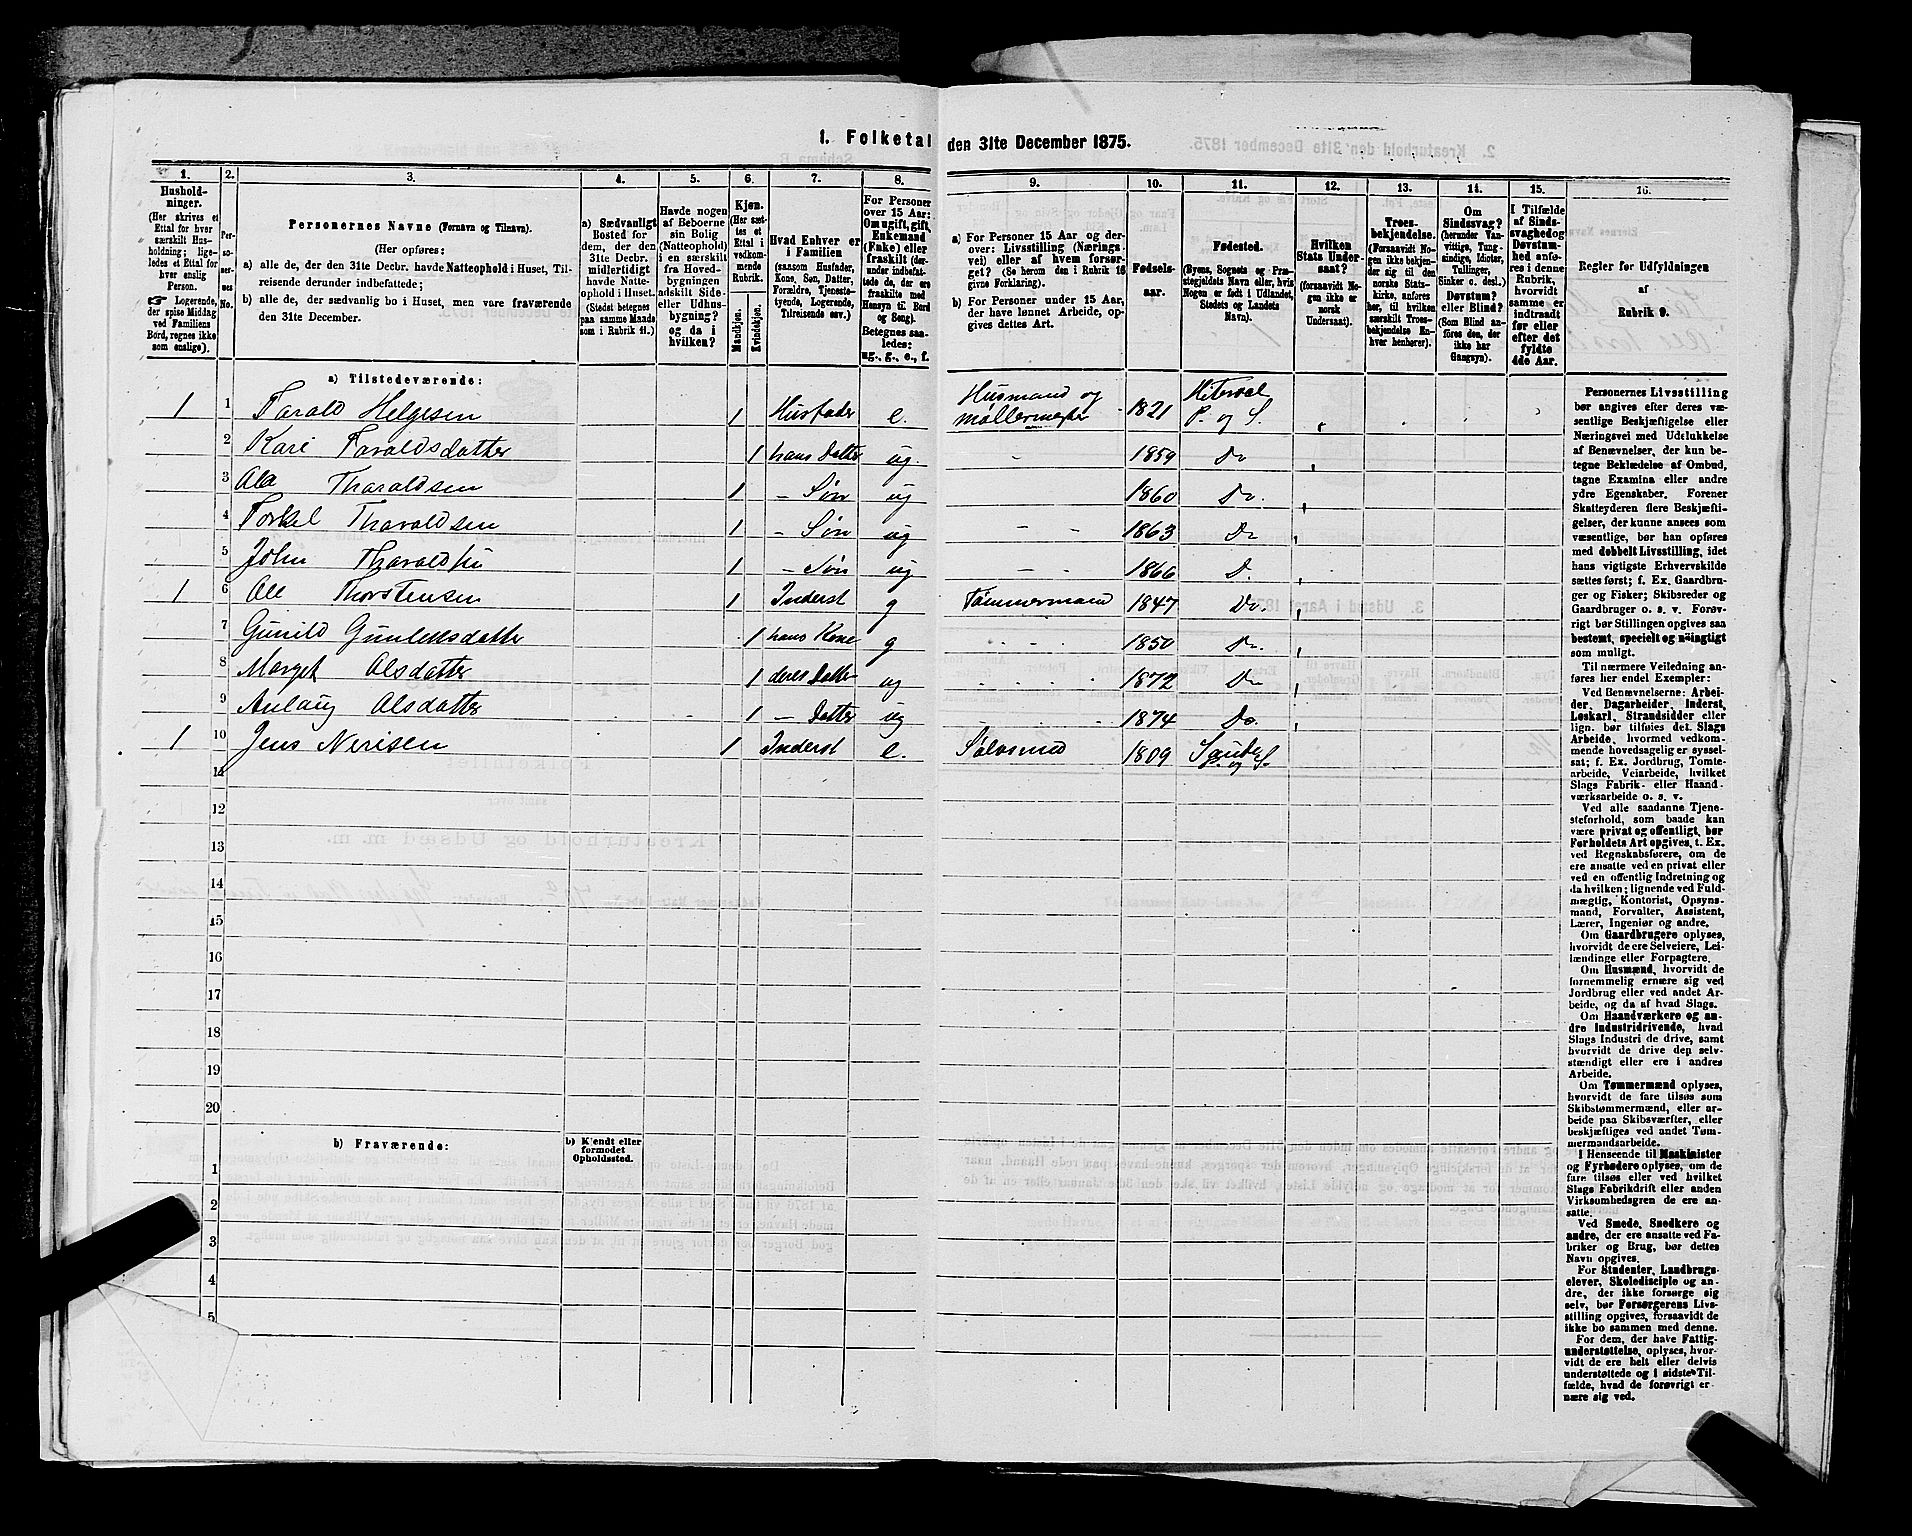 1. Folketal den 31te December 1875.
1. 2. 3. 4. 5. 6. 7. 8. 9. 10. 11. 12. 13. 14. 15. 16.
Hushold-
ninger.
(Her skrives et
Ettal for hver
særskilt Hus-
holdning; lige-
ledes et Ettal for
hver enslig
Person.
☞ Logerende,
der spise Middag
ved Familiens
Bord, regnes ikke
som enslige).
Per-
soner-
nes
No.
Personernes Navne (Fornavn og Tilnavn).
(Her opføres:
a) alle de, der den 31te Decbr. havde Natteophold i Huset, Til-
reisende derunder indbefattede;
b) alle de, der sædvanlig bo i Huset, men vare fraværende
den 31te December.
a) Sædvanligt
Bosted for
dem, der den
31te Decbr.
midlertidigt
havde Natte-
ophold i Huset.
(Stedet betegnes
paa samme Maade
som i Rubrik 11.)
Havde nogen
af Beboerne
sin Bolig
(Natteophold)
i en særskilt
fra Hoved-
bygningen
adskilt Side-
eller Udhus-
bygning?
og da i
hvilken?
Kjøn.
(Her sæt-
tes et
Ettal i
vedkom-
mende
Rubrik.
Mandkjøn.
Kvindekjøn.
Hvad Enhver er
i Familien
(saasom Husfader,
Kone, Søn, Datter,
Forældre, Tjeneste-
tyende, Logerende,
Tilreisende osv.)
For Personer
over 15 Aar:
Om ugift, gift,
Enkemand
(Enke) eller
fraskilt (der-
under indbefat-
tede de, der ere
fraskilte med
Hensyn til Bord
og Seng).
Betegnes saa-
ledes:
ug., g., e., f.
a) For Personer 15 Aar og der-
over: Livsstilling (Nærings-
vei) eller af hvem forsør-
get? (Se herom den i Rubrik 16
givne Forklaring).
b) For Personer under 15 Aar,
der have lønnet Arbeide, op-
gives dettes Art.
Fødsels-
aar.
Fødested.
(Byens, Sognets og Præ-
stegjeldets Navn eller, hvis
Nogen er født i Udlandet,
Stedets og Landets
Navn).
Hvilken
Stats Under-
saat?
(forsaavidt No-
gen ikke er
norsk
Undersaat).
Troes-
bekjendelse.
(Forsaavidt No-
gen ikke bekjen-
der sig til den
norske Stats-
kirke, anføres
her, til hvilken
særskilt Troes-
bekjendelse En-
hver henhører).
Om
Sindssvag?
(herunder Van-
vittige, Tung-
sindige, Idioter,
Tullinger,
Sinker o. desl.)
Døvstum?
eller Blind?
(Som Blind an-
føres den, der
ikke har
Gangsyn).
I Tilfælde
af Sinds-
svaghed og
Døvstum-
hed anfø-
res i denne
Rubrik,
hvorvidt
samme er
indtraadt
før eller
efter det
fyldte
4de Aar.
Regler for Udfyldningen
af
Rubrik 9.
a) Tilstedeværende:
1 1 Tarald Helgesen 1 Husfader e. Husmand og møllermester 1821 Hiterdal P. og S.
2 Kari Taraldsdatter 1 hans Datter ug. - 1859 Do
3 Ole Tharaldsen 1 - Søn ug - - 1860 Do.
4 Torkel Tharaldsen 1 - Søn ug - - 1863 Do
5 John Tharaldsen 1 - Søn ug - - 1866 D.
1 6 Ole Thorstensen 1 Inderst g Tømmermand 1847 Do.
7 Gunild Gunleksdatter 1 hans Kone g 1850 Do.
8 Marget Olsdatter 1 deres Datter ug 1872 Do
9 Aslaug Olsdatter 1 - Datter ug 1874 Do.
1 10 Jens Nerisen 1 Inderst e. Sølvsmed 1809 Saude P. og S.
11
12
13
14
15
16
17
18
19
20
b) Fraværende:
b) Kjendt eller
formodet
Opholdssted.
1
2
3
4
5
Personernes Livsstilling
bør angives efter deres væ-
sentlige Beskjæftigelse eller
Næringsvei med Udelukkelse
af Benævnelser, der kun be-
tegne Beklædelse af Ombud,
tagne Examina eller andre
ydre Egenskaber. Forener
Skatteyderen flere Beskjæfti-
gelser, der kunne ansees som
væsentlige, bør han opføres
med dobbelt Livsstilling, idet
hans vigtigste Erhvervskilde
sættes først; f. Ex. Gaardbru-
ger og Fisker; Skibsreder og
Gaardbruger o. s. v. Forøv-
rigt bør Stillingen opgives saa
bestemt, specielt og nøiagtigt
som muligt.
Til nærmere Veiledning an-
føres her endel Exempler:
Ved Benævnelserne: Arbei-
der, Dagarbeider, Inderst,
Løskarl, Strandsidder eller
lign. bør tilføies det Slags
Arbeide, hvormed vedkom-
mende hovedsagelig er syssel-
sat; f. Ex. Jordbrug, Tomte-
arbeide, Veiarbeide, hvilket
Slags Fabrik- eller Haand-
værksarbeide o. s. v.
Ved alle saadanne Tjene-
steforhold, som baade kan
være privat og offentligt, bør
Forholdets Art opgives, t. Ex.
ved Regnskabsførere, om de
ere ansatte ved en privat eller
ved en offentlig Indretning og
da hvilken; lignende ved Fuld-
mægtig, Kontorist, Opsyns-
mand, Forvalter, Assistent,
Lærer, Ingeniør og andre.
Om Gaardbrugere oplyses,
hvorvidt de ere Selveiere, Lei-
lændinge eller Forpagtere.
Om Husmænd, hvorvidt de
fornemmelig ernære sig ved
Jordbrug eller ved andet Ar-
beide, og da af hvad Slags.
Om Haandværkere og an-
dre Industridrivende, hvad
Slags Industri de drive, samt
hvorvidt de drive den selv-
stændigt eller ere i andres
Arbeide.
Om Tømmermænd oplyses,
hvorvidt de fare tilsøs som
Skibstømmermænd, eller ar-
beide paa Skibsværfter, eller
beskjæftiges ved andet Tøm-
mermandsarbeide.
I Henseende til Maskinister
og Fyrbødere oplyses, om de
fare tilsøs eller ved hvilket
Slags Fabrikdrift eller anden
Virksomhedsgren de ere an-
satte.
Ved Smede, Snedkere og
andre, der ere ansatte ved Fa-
briker og Brug, bør dettes
Navn opgives.
For Studenter, Landbrugs-
elever, Skoledisciple og an-
dre, der ikke forsørge sig
selv, bør Forsørgerens Livs-
stilling opgives, forsaavidt de
ikke bo sammen med denne.
For dem, der have Fattig-
understøttelse, oplyses, hvor-
vidt de ere helt eller delvis
understøttede og i sidste Til-
fælde, hvad de forøvrigt er-
nære sig ved.